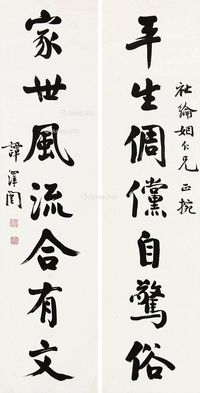 平生倜儻自驚俗
社綸姻仁兄正捥
家世風流合有文
譚澤闓